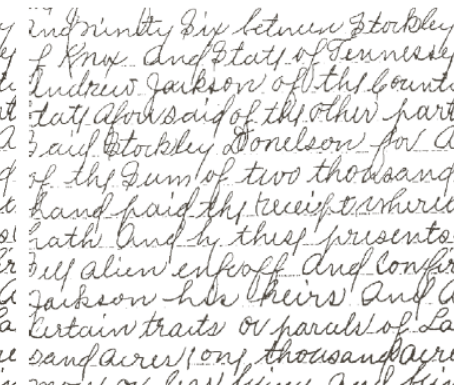 and ninety Six between Stockley
f Knox and State of Tennessee
Andrew Jackson of the Count
tate aforesaid of the other part
Said Stockley Donelson for a
of the Sum of two thousand
hand paid the receipt where
hath And by these presents
Sell alien enfeoff and Confir
Jackson his heirs And A
Certain traits or parcels of La
sand acres (one thousand acre